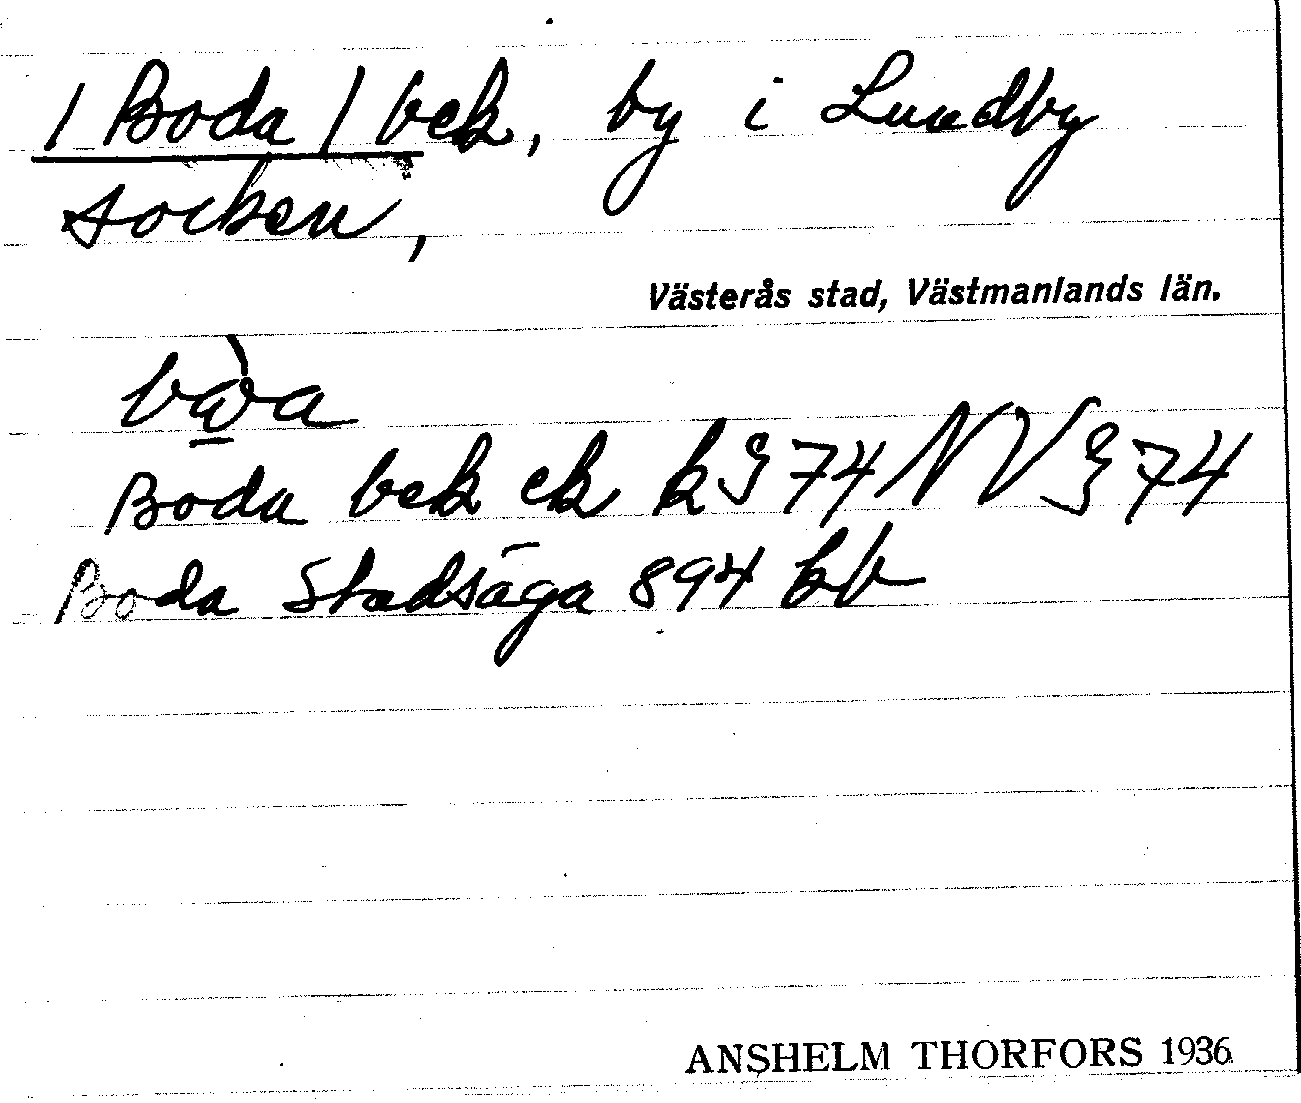 / Boda / bek, by i Lundby
socken,
Västerås stad, Västmanlands län.
Boda bek ek k 374 NV 374
Boda Stadsäga 894 kb
ANSHELM THORFORS 1936